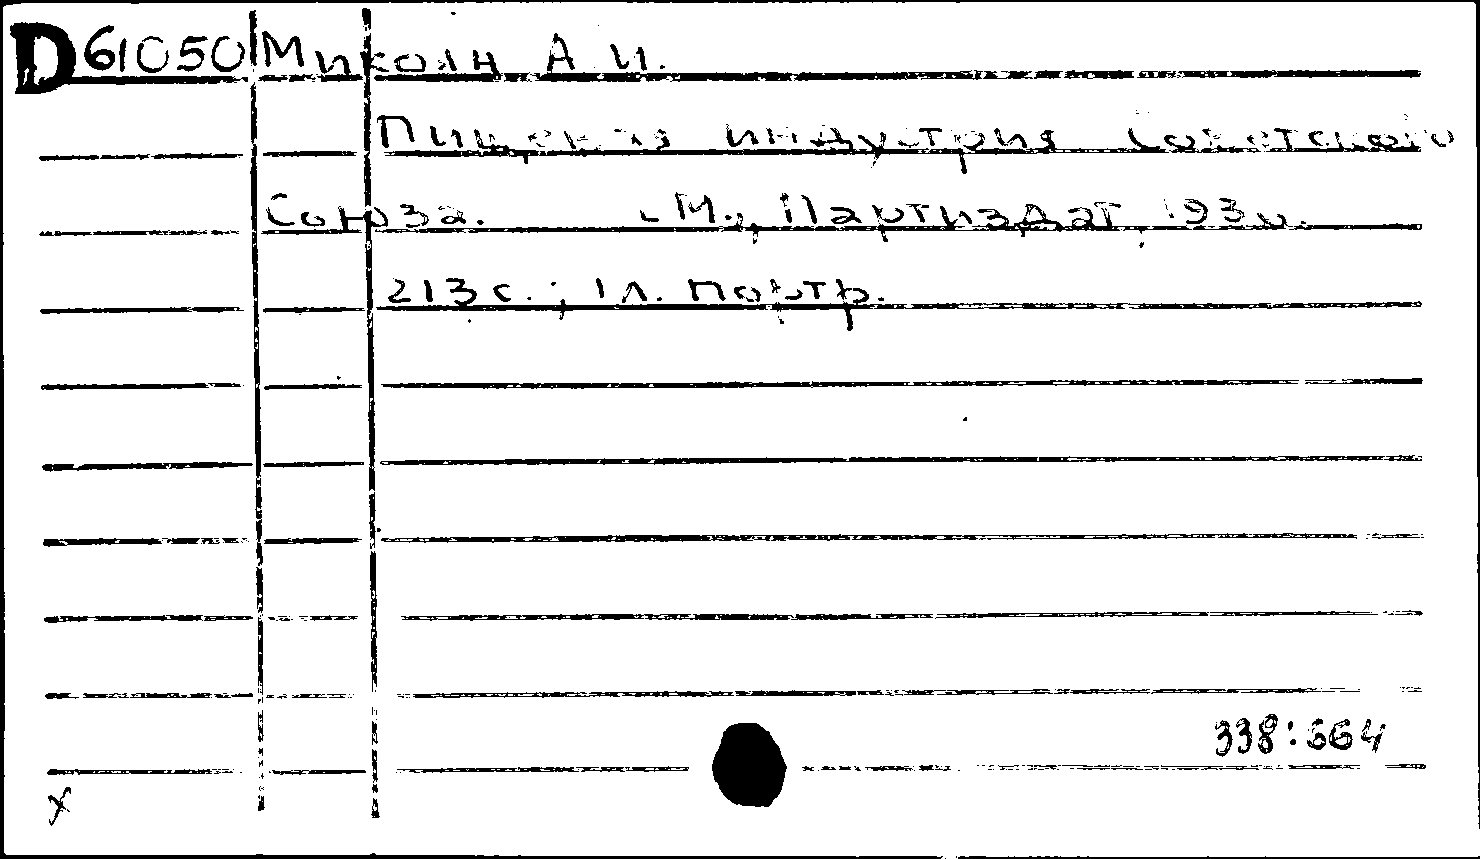 D61050 Микоян А. И.
Пищевая индустрия Советского
Союза. М., Партиздат,
213 с.; 1 л. портр.
338:664
x